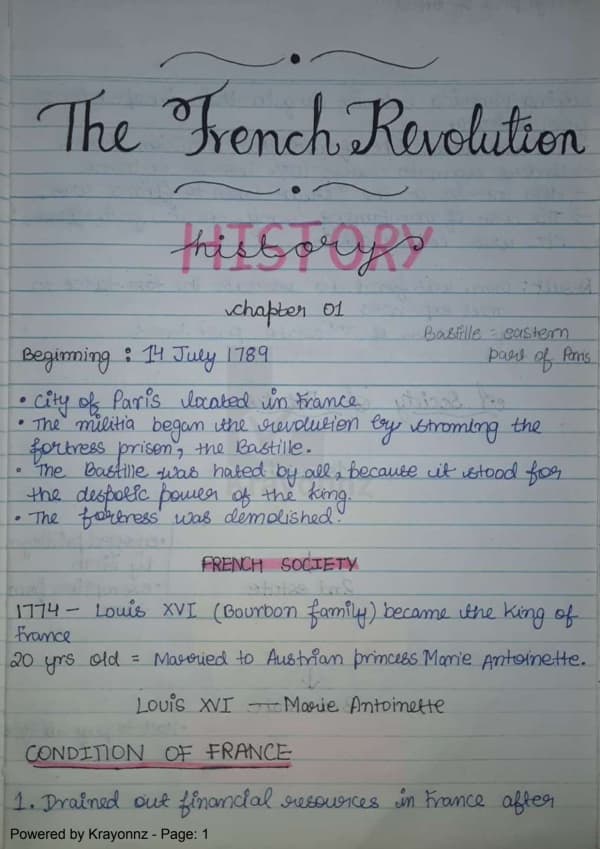 The French Revolution
HISTORY
history
chapter 01
Bastille = eastern
part of Paris
Beginning : 14 July 1789
• City of Paris located in France
• The militia began the revolution by stroming the
fortress prison, the Bastille.
• The Bastille was hated by all, because it stood for
the despotic power of the king.
• The fortress was demolished.
FRENCH SOCIETY
1774 – Louis XVI (Bourbon family) became the king of
France
20 yrs old = Married to Austrian princess Marie Antoinette.
Louis XVI — Marie Antoinette
CONDITION OF FRANCE
1. Drained out financial resources in France after
Powered by Krayonnz - Page: 1